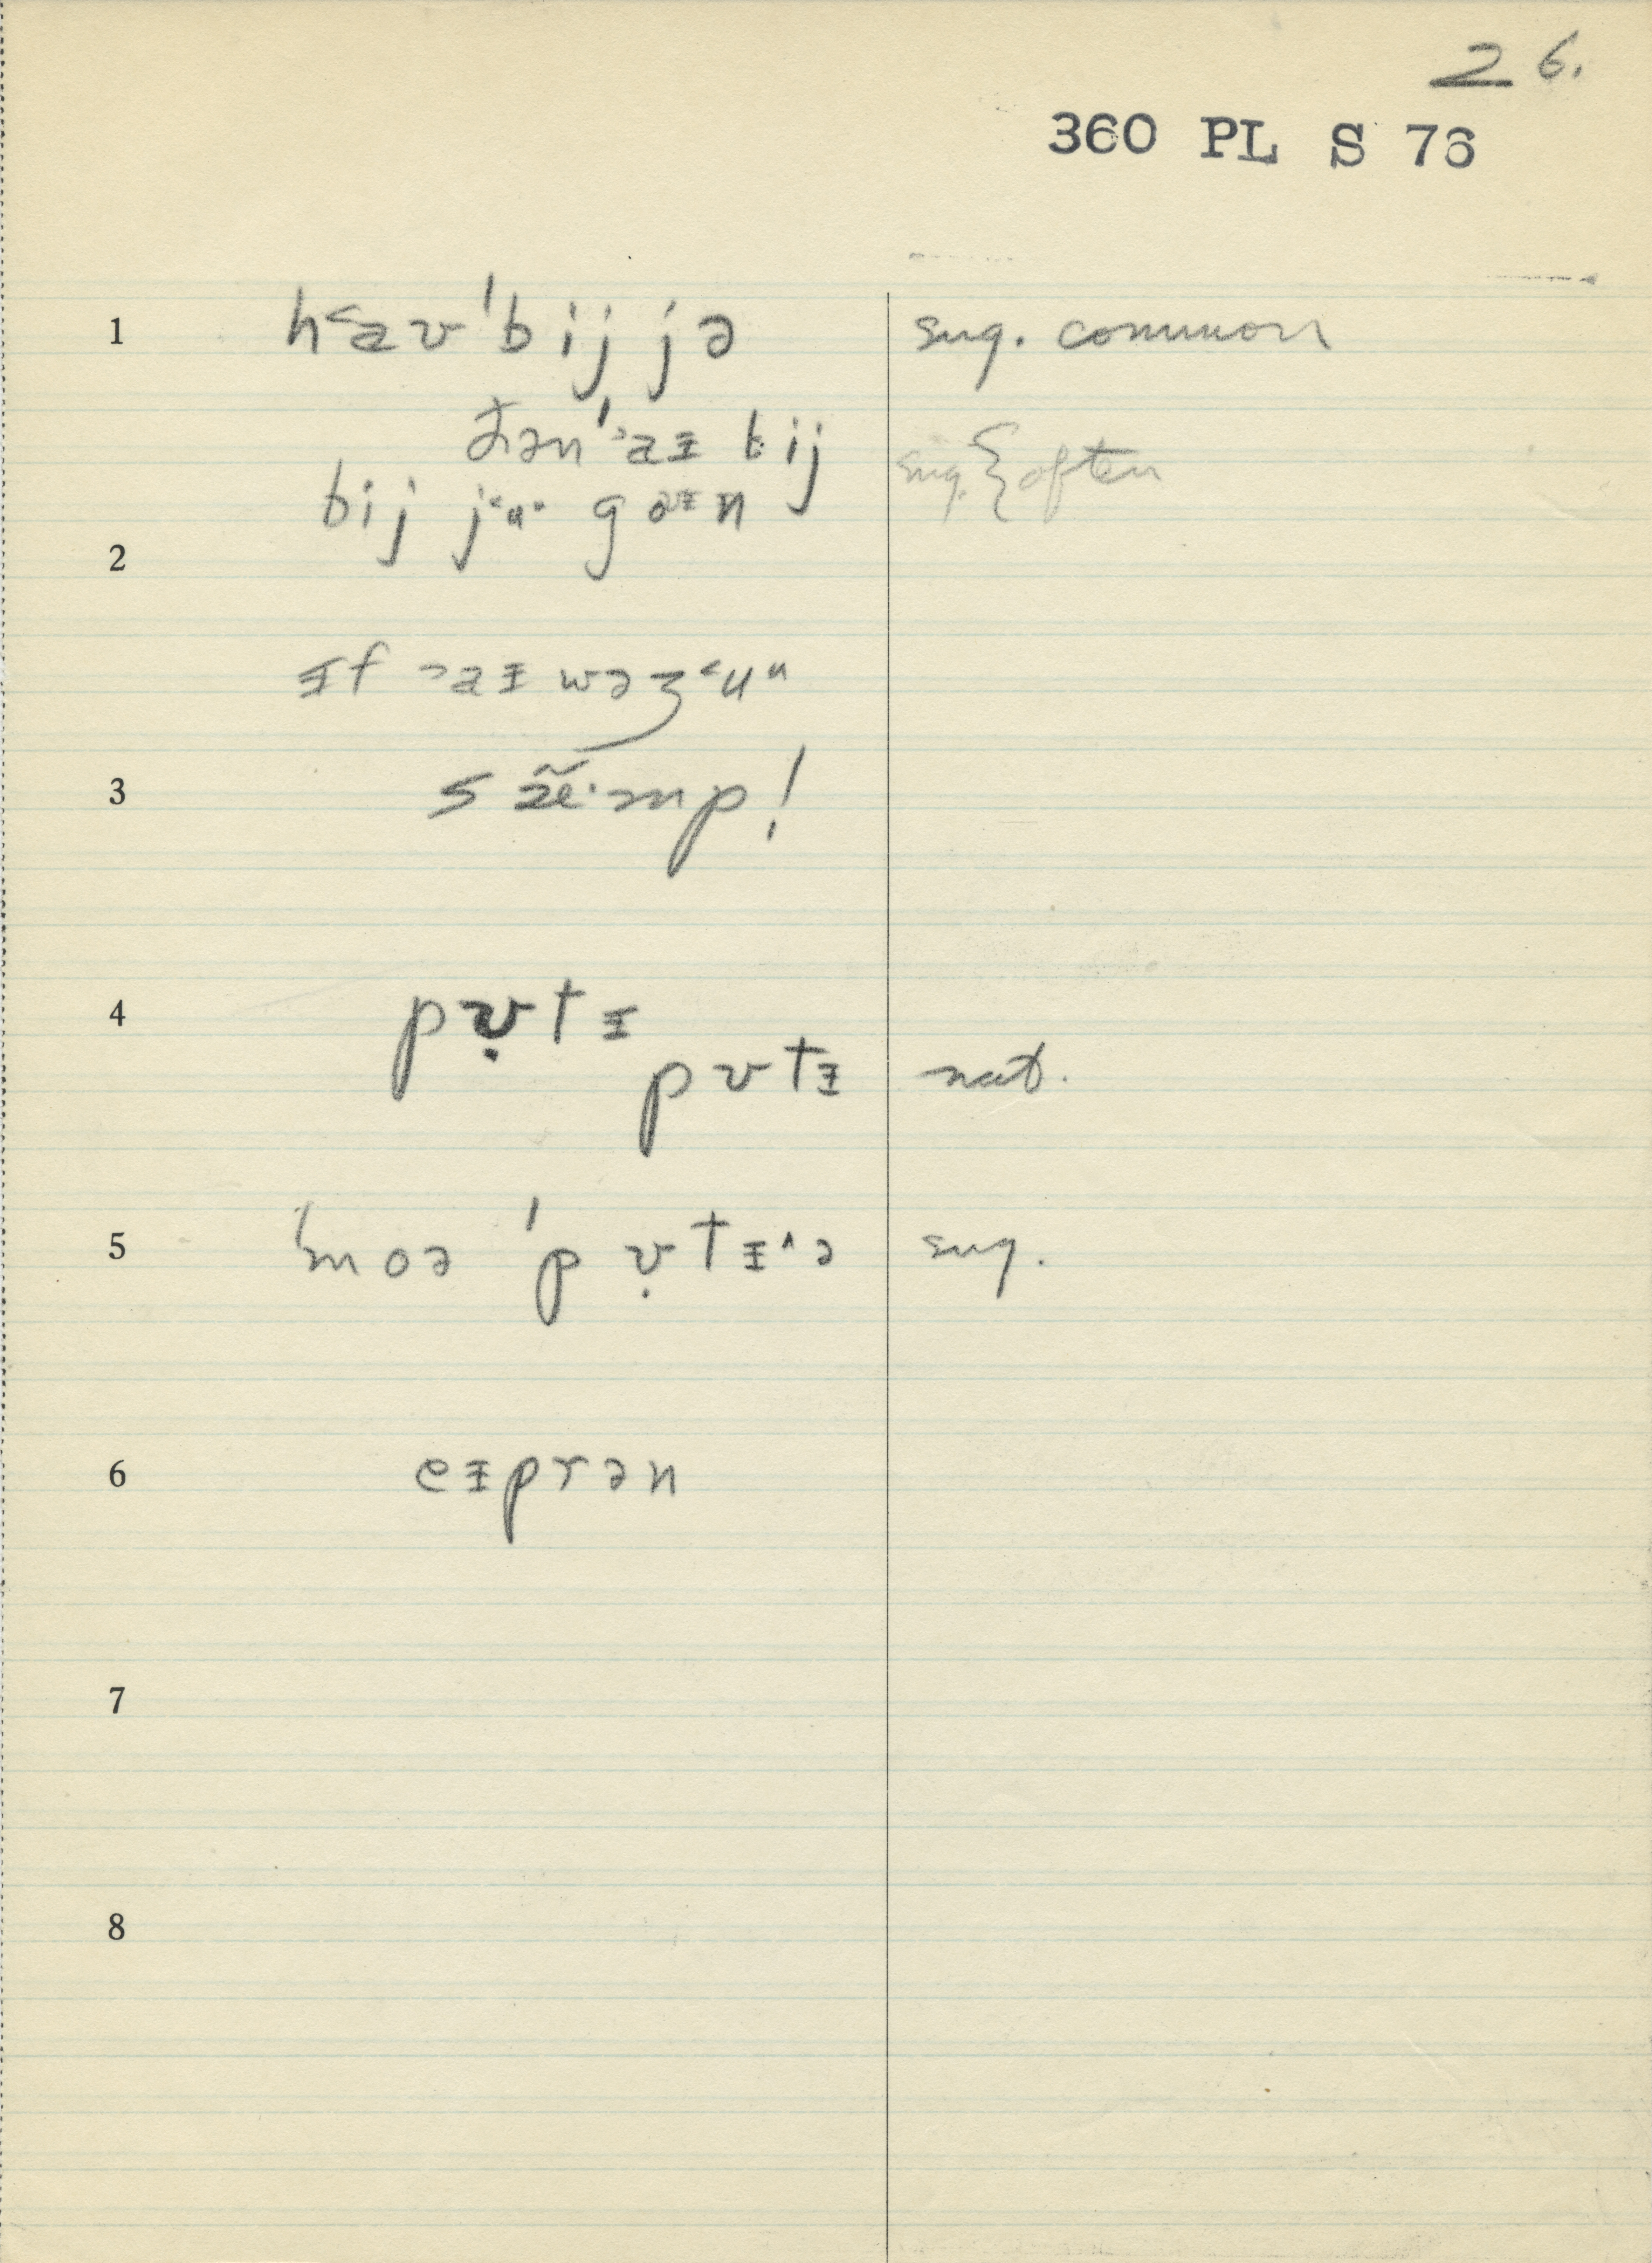 26.
360 PL S 76
1 h˂aʊ ˈbij jə sug. common
ðən ˈ˃aɪ bij
bij j˂u˞ goɪn sug. } often
2
ɪf ˃aɪ wəz ˂uᵘ
3 s æ̃ɛ·mp!
4 pʊ̣tɪ
pʊtɪ nat.
5 ˈmoə ˈpʊ̣tɪ˄ə sug.
6 eɪprən
7
8